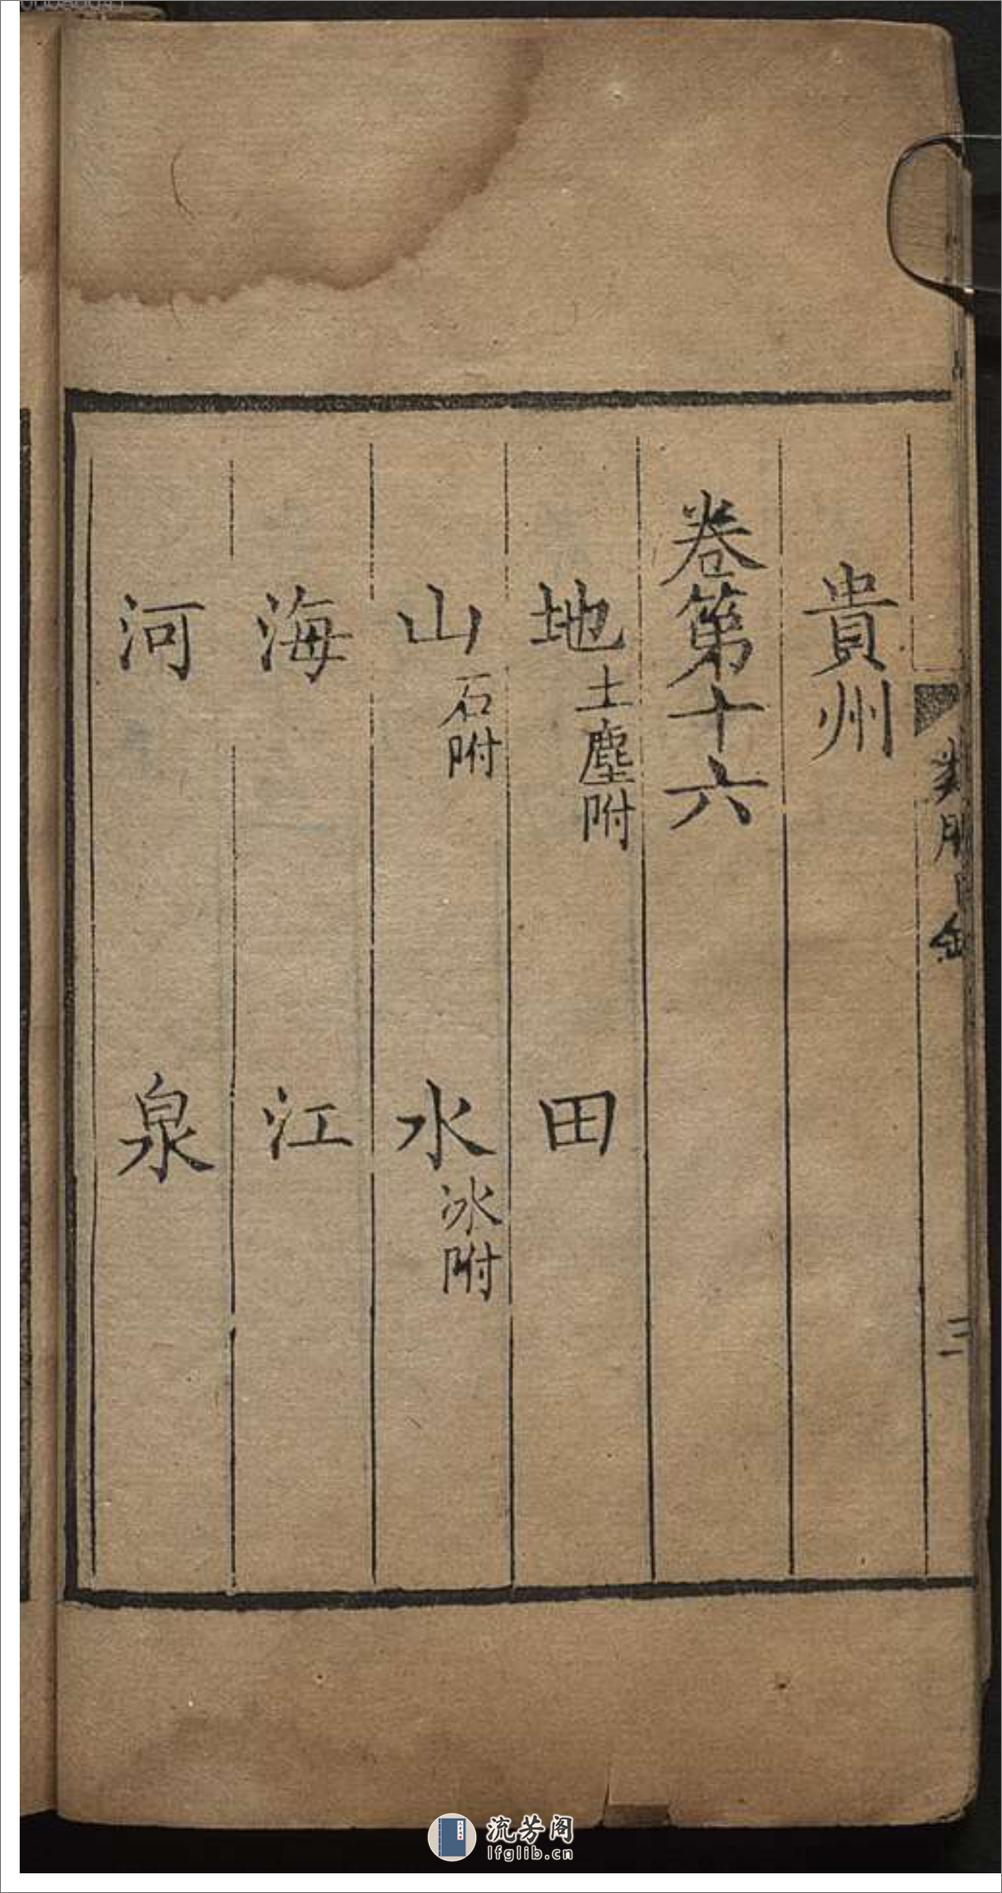 貴州
卷第十六
地 土塵附 田
山 石附 水 冰附
海 江
河 泉
三
流芳阁
lfglib.cn